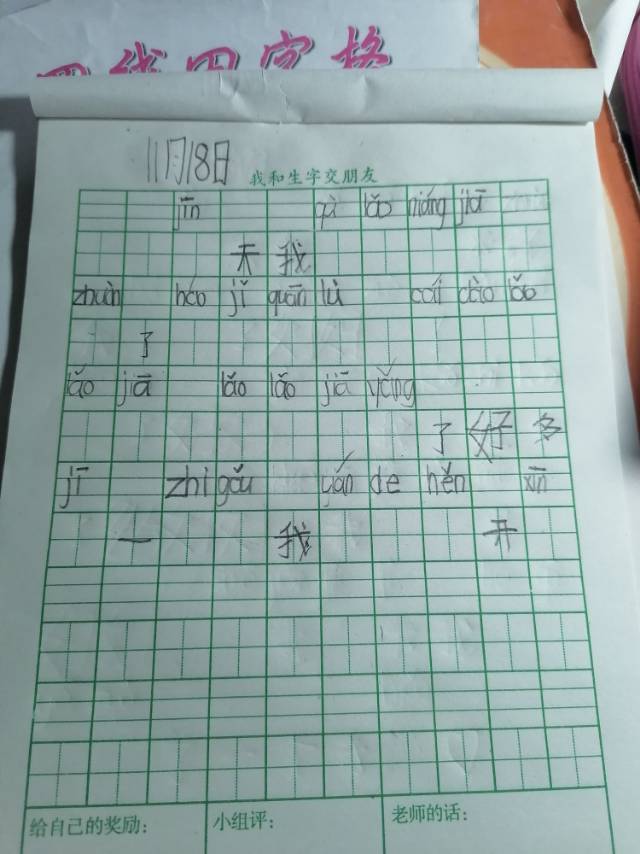 四线田字格
11月18日
我和生字交朋友
jīn qù lǎo niáng jiā
天 我
zhuàn hǎo jǐ quān lù cái dào lǎo
了
lǎo jiā lǎo lǎo jiā yǎng
了 好 多
jī zhī gǒu wán de hěn xīn
一 我 开
给自己的奖励：
小组评：
老师的话：